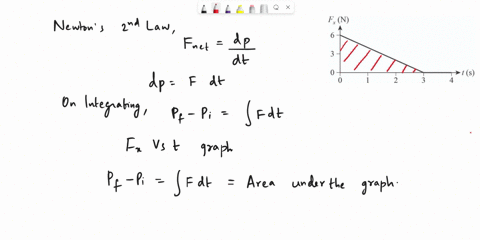 Newton's 2nd Law,
Fnet = dp/dt
dp = F dt
On Integrating, Pf - Pi = ∫ F dt
Fx Vs t graph
Pf - Pi = ∫ F dt = Area under the graph.
Fx (N)
6
3
0
0 1 2 3 4 t (s)